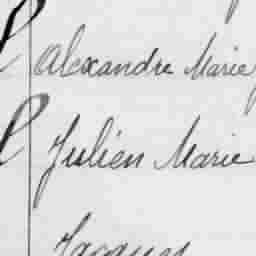 Alexandre Marie
Julien Marie
Jacques